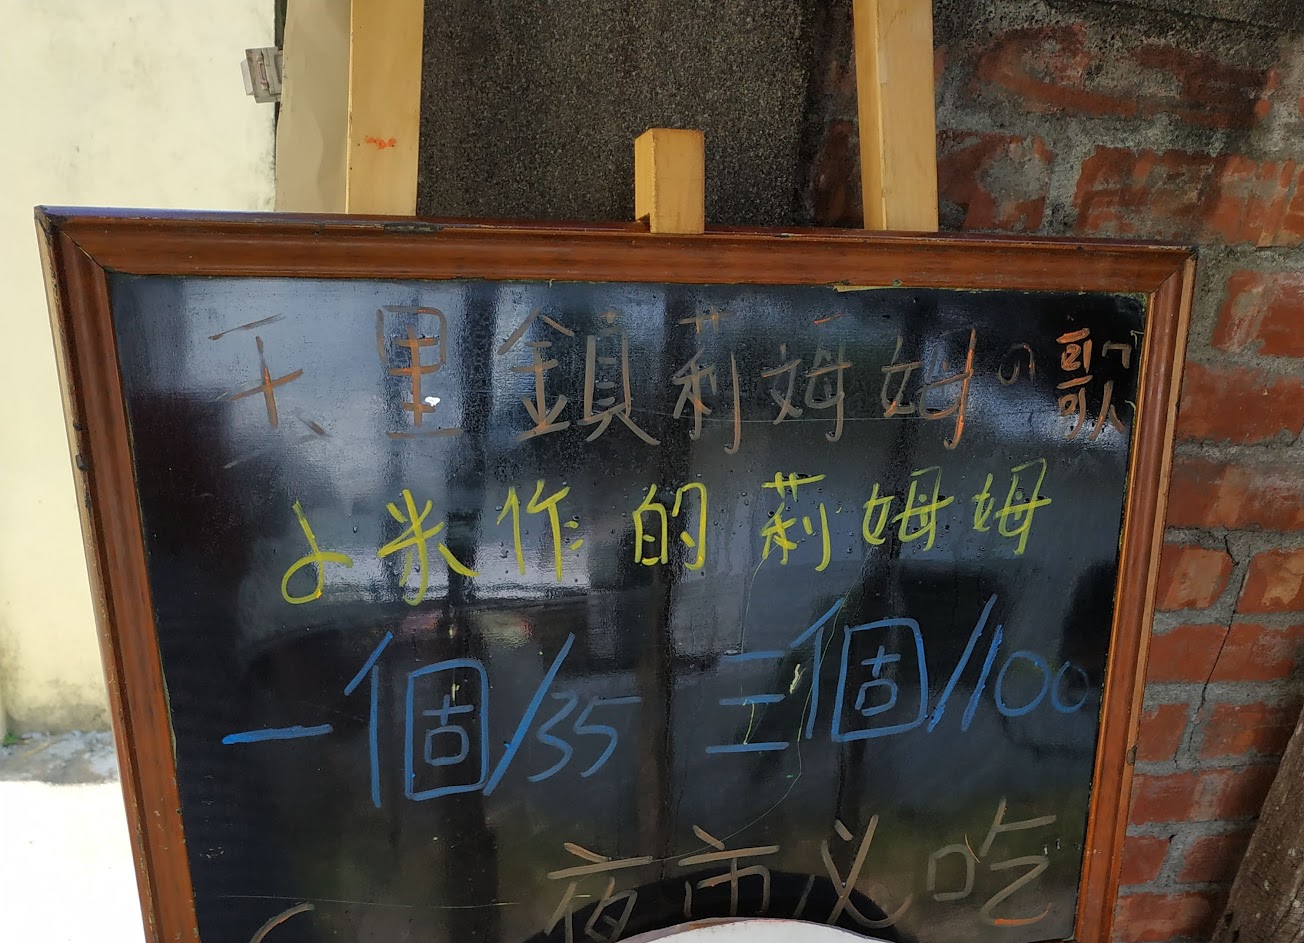 千里鎖莉姆姆の歌
よ米作的莉姆姆
一個/35 三個/100
夜市必吃